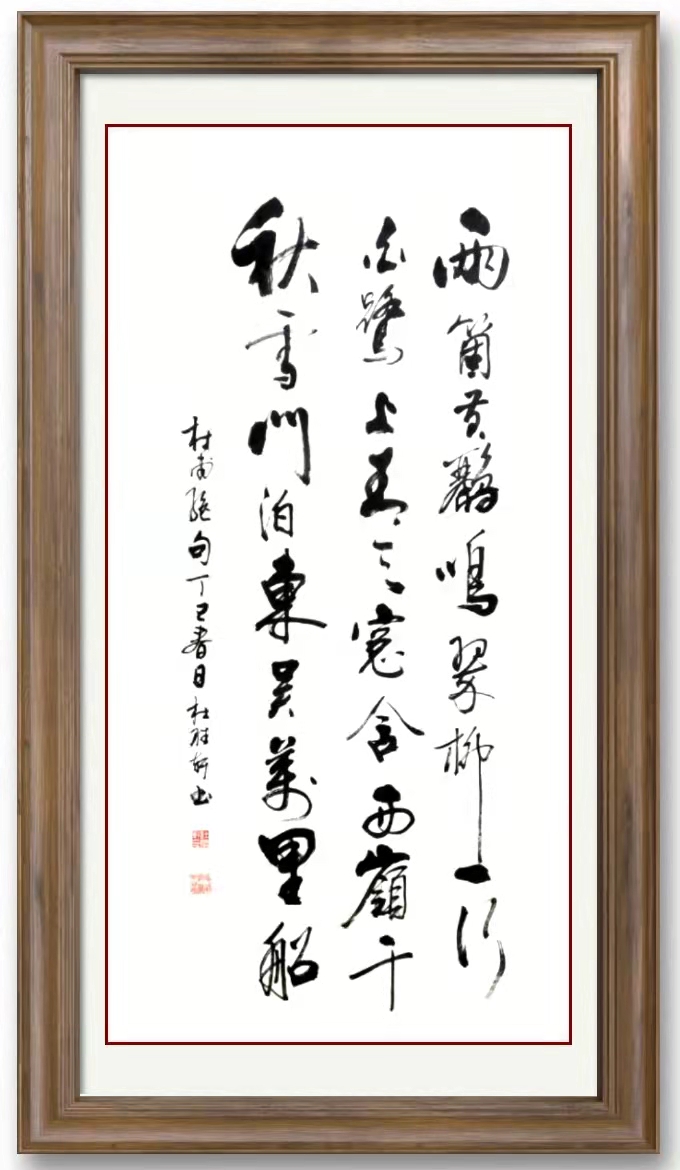 兩箇黃鸝鳴翠柳一行
白鷺上青天窗含西嶺千
秋雪門泊東吳萬里船
杜甫絕句丁巳春日杜書